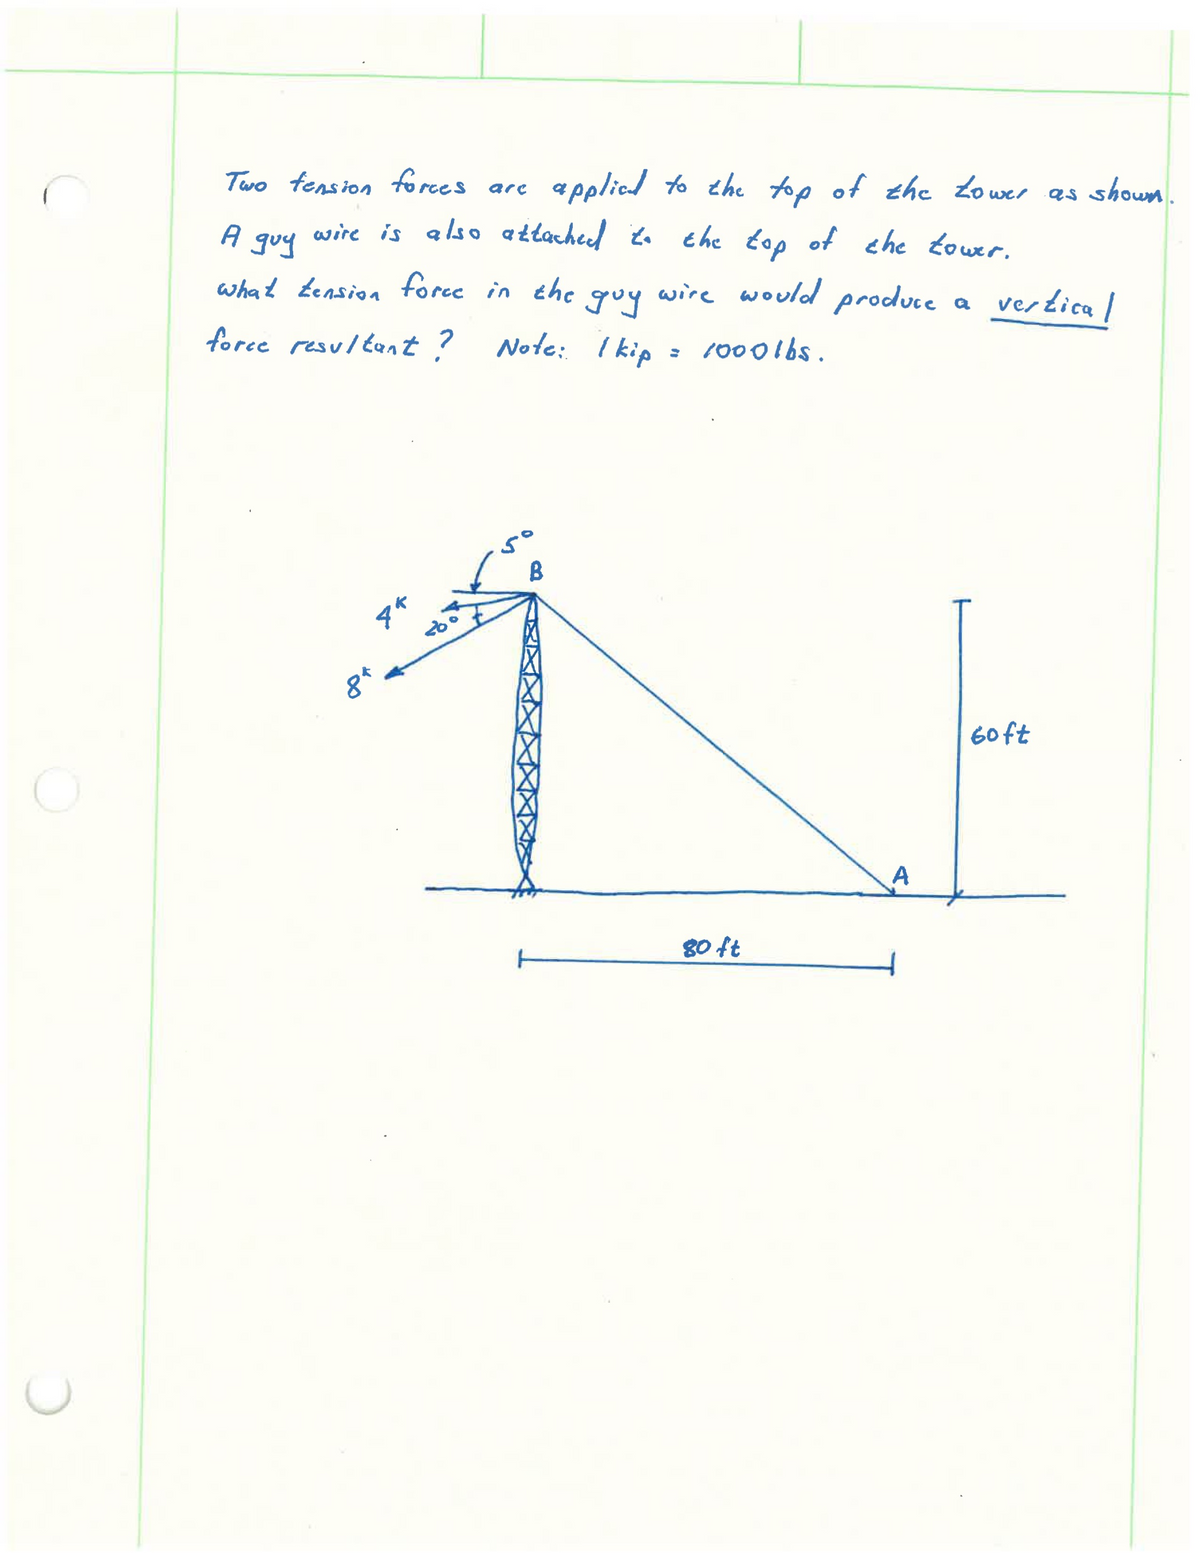 Two tension forces are applied to the top of the tower as shown.
A guy wire is also attached to the top of the tower.
What tension force in the guy wire would produce a vertical
force resultant? Note: 1 kip = 1000 lbs.
5°
B
4ᴷ
20°
8ᴷ
60 ft
A
80 ft